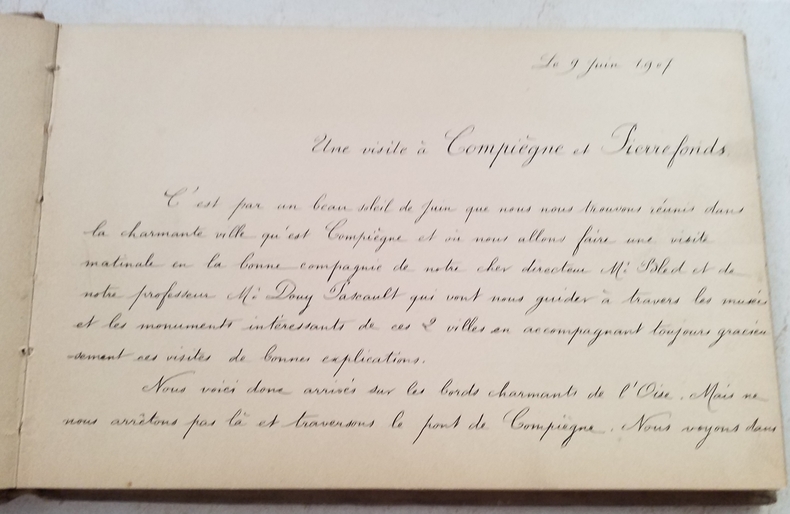 Le 9 Juin 1907
Une visite à Compiègne et Pierrefonds.
C'est par un beau soleil de Juin que nous nous trouvons réunis dans
la charmante ville qu'est Compiègne et où nous allons faire une visite
matinale en la bonne compagnie de notre cher directeur Mr Bled et de
notre professeur Mr Douy Pascault qui vont nous guider à travers les musées
et les monuments intéressants de ces 2 villes en accompagnant toujours gracieu
-sement ces visites de bonnes explications.
Nous voici donc arrivés sur les bords charmants de l'Oise. Mais ne
nous arrêtons pas là et traversons le pont de Compiègne. Nous voyons dans